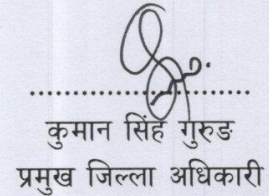 कुमान सिंह गुरुङ
प्रमुख जिल्ला अधिकारी